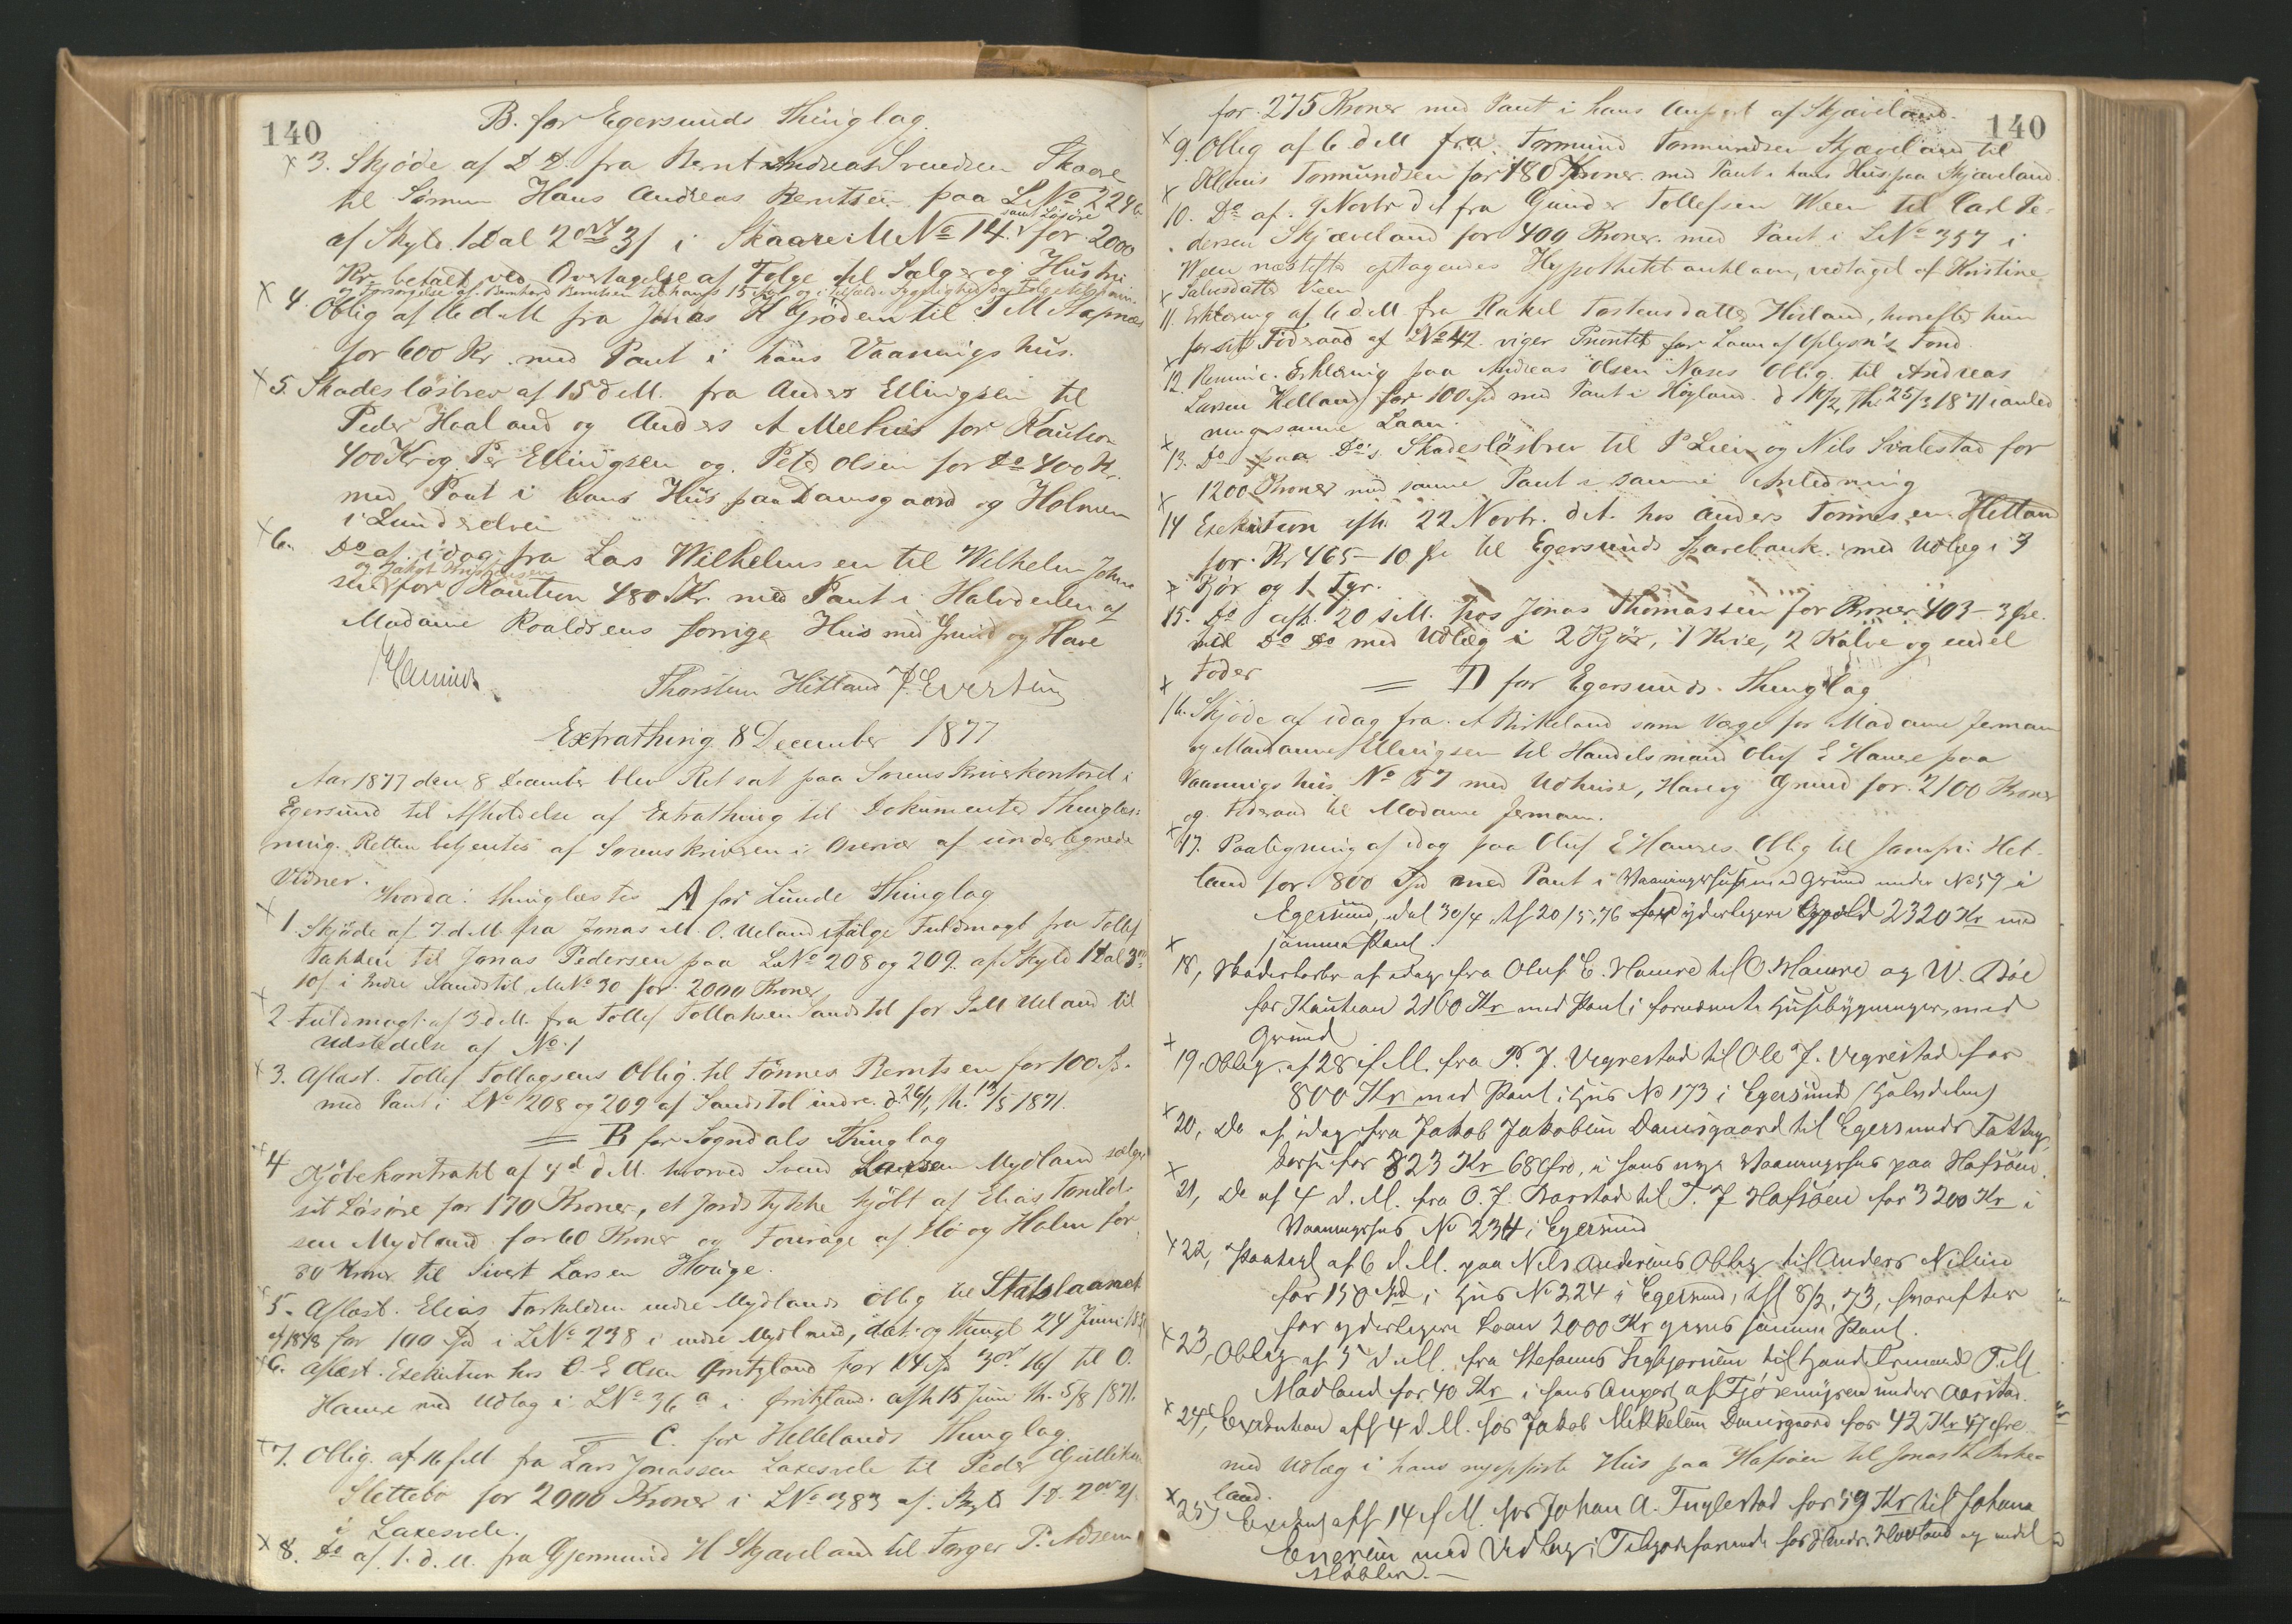 140
B. for Egersunds Thinglag
3. Skjöde af D D. fra Bernt Andreas Svendsen Skaare
til Sönnen Hans Andreas Berntsen paa LNo 229b
af Skyld 1 Dal 2 ort 3 s i Skaare MNo 14. for 2000
samt Lösöre
Kr. betalt ved Overtagelse af Folge til Sælger og Hustru
og Forsörgelse af Bernhard Berntsen til hans 15 Aar og i Tilfælde
4. Oblig af 16 d M fra Jonas H Grödem til T M Stapnæs
for 600 Kr. med Pant i hans Vaaningshus.
5. Skadeslösbrev af 15 d M. fra Anders Ellingsen til
Peder Haaland og Anders A Meehus for Kaution
400 Kr og Per Ellingsen og Peter Olsen for Do 400 K.
med Pant i hans Hus paa Damsgaard og Holmen
i Lundeelven
6. Do af idag fra Lars Wilhelmsen til Wilhelm Johan
og Jakob
sen for Kaution 480 Kr. med Pant i Halvdelen af
Madame Roaldsens forrige Hus med Grund og Have
Thorsten Hetland J. Evertsen
Extrathing 8 December 1877
Aar 1877 den 8 December blev Ret sat paa Sorenskriverkontoret i
Egersund til Afholdelse af Extrathing til Dokumenters Thinglæs-
ning. Retten betjentes af Sorenskriveren i Overvær af undertegnede
Vidner.
Hvorda: thinglæstes A for Lunde Thinglag
1. Skjöde af 7 d M fra Jonas M. O. Ueland ifölge Fuldmagt fra Tollef
Takken til Jonas Pedersen paa LNo 208 og 209. af Skyld 1 Dal 3 ort
10 s i Indre Sandstöl MNo 90 for 2000 Kroner
2. Fuldmagt af 3 d M. fra Tollef Tollaksen Sandstöl for J M Ueland til
Udstedelse af No 1
3. Aflæst. Tollef Tollagsens Oblig. til Tönnes Berntsen for 100 Sp.
med Pant i LNo 208 og 209 af Sandstöl indre. d. 26/1, th. 12/5 1871.
= B for Sogndals Thinglag
4 Kjöbekontrakt af 4de d M. hvorved Svend Larsen Mydland sælger
sit Lösöre for 170 Kroner, et Jordstykke kjöbt af Elias Torkild-
sen Mydland for 60 Kroner og Fourage af Hö og Halm for
80 Kroner til Sivert Larsen Hauge.
5. Aflæst. Elias Torkildsen indre Mydlands Oblig til Statslaanet
af 1848 for 100 Spd i LNo 238 i indre Mydland, dat. og thingl 24 Juni
6. Aflæst. Exekution hos O. E Olsen Qvitland for 14 Spd 3 ort 16 s til O.
Hauge med Udlæg i LNo 36 a i Qvitland. afh 15 Juni th. 5/8 1871.
= C. for Hellelands Thinglag.
7. Oblig. af 16 f M fra Lars Jonassen Laxesvele til Peder Gulliksen
Slettebö for 2000 Kroner i LNo 383 af Skyld 1 D. 2 ort 2 s
i Laxesvele.
8. Do af 1. d. M. fra Gjermund H Skjæveland til Torger P. Adsem
140
for 275 Kroner med Pant i hans Anpart af Skjæveland.
9. Oblig af 6 d M fra Tormund Tormundsen Skjæveland til
Klaus Tormundsen for 180 Kroner med Pant i hans Hus paa Skjæveland.
10. Do af 9 Novbr d A fra Gunder Tollefsen Ween til Carl Pe-
dersen Skjæveland for 400 Kroner. med Pant i LNo 357 i
Ween næstefter optagendes Hypothekbanklaan, vedtaget af Kristine
Salvesdatter Veen
11. Erklæring af 6 d M. fra Rakel Tostensdatter Hovland, hvorefter hun
for sit Föderaad af LNo 42. viger Prioritet for Laan af Oplysn's Fond.
12. Reminic. Erklæring paa Andreas Olsen Næses Oblig. til Andreas
Larsen Helland for 100 Spd med Pant i Högland. d 14/2, th. 25/3 1871 i anled
ning samme Laan.
13. Do paa Do's Skadeslösbrev til P Lien og Nils Svalestad for
1200 Kroner med samme Pant i samme Anledning
14 Exekution afh. 22 Novbr. d A. hos Anders Tönnesen Hetland
for Kr 465 - 10 Öre til Egersunds Sparebank med Udlæg i 3
Kjör og 1 Tyr.
15. Do afh. 20 s M. hos Jonas Thomassen for Kroner 403 - 3 Öre.
til Do Do med Udlæg i 2 Kjör, 1 Kvie, 2 Kalve og endel
Foder
= D for Egersunds Thinglag
16. Skjöde af idag fra A Birkeland som Værge for Madame Jerman
og Madame Ellingsen til Handelsmand Oluf E Haure paa
Vaaningshus No 57 med Udhuse, Have og Grund for 2100 Kroner
og Föderaad til Madame Jerman.
17. Paategning af idag paa Oluf E Haures Oblig til Jomfru Het-
land for 800 Spd med Pant i Vaaningshus med Grund under No 57 i
Egersund, dat 30/4 thl 20/5, 76 for yderligere Gjæld 2320 Kr med
samme Pant.
18, Skadeslösbr. af idag fra Oluf E. Haure til O Haure og W. Böe
for Kaution 2160 Kr med Pant i fornævnte Husebygninger, med
Grund
19. Oblig. af 28 f. M. fra P. J. Vegrestad til Ole J. Vegrestad for
800 Kr med Pant i Hus No 173 i Egersund (Halvdelen)
20, Do af idag fra Jakob Jakobsen Damsgaard til Egersunds Fattig-
for 823 Kr 68 Öre, i hans nye Vaaningshus paa Hafsöen.
21, Do af 4 d. M. fra O. J. Barstad til T. J Hafsöen for 3200 Kr i
Vaaningshus No 234 i Egersund
22, Paategn af 6 d M. paa Nels Andersens Oblig til Anders Nilsen
for 150 Spd i Hus No 224 i Egersund, thl 8/2, 73, hvorefter
for yderligere Laan 2000 Kr gives samme Pant.
23, Oblig af 5 d. M. fra Stefanus Sigbjörnsen til Handelsmand T. M.
Madland for 40 Kr i hans Anpart af Tjörnmyren under Aarstad.
24, Exekution afh 4 d. M. hos Jakob Mikkelsen Damsgaard for 42 Kr 47 Öre
med Udlæg i hans nyopförte Hus paa Hafsöen til Jonas Th Birke-
land.
25, Exekut afh 14 f M. hos Johan A. Fuglestad for 59 Kr til Johan
Enersen med Udlæg i Tilgodehavende hos Hovland og endel
Möbler.-